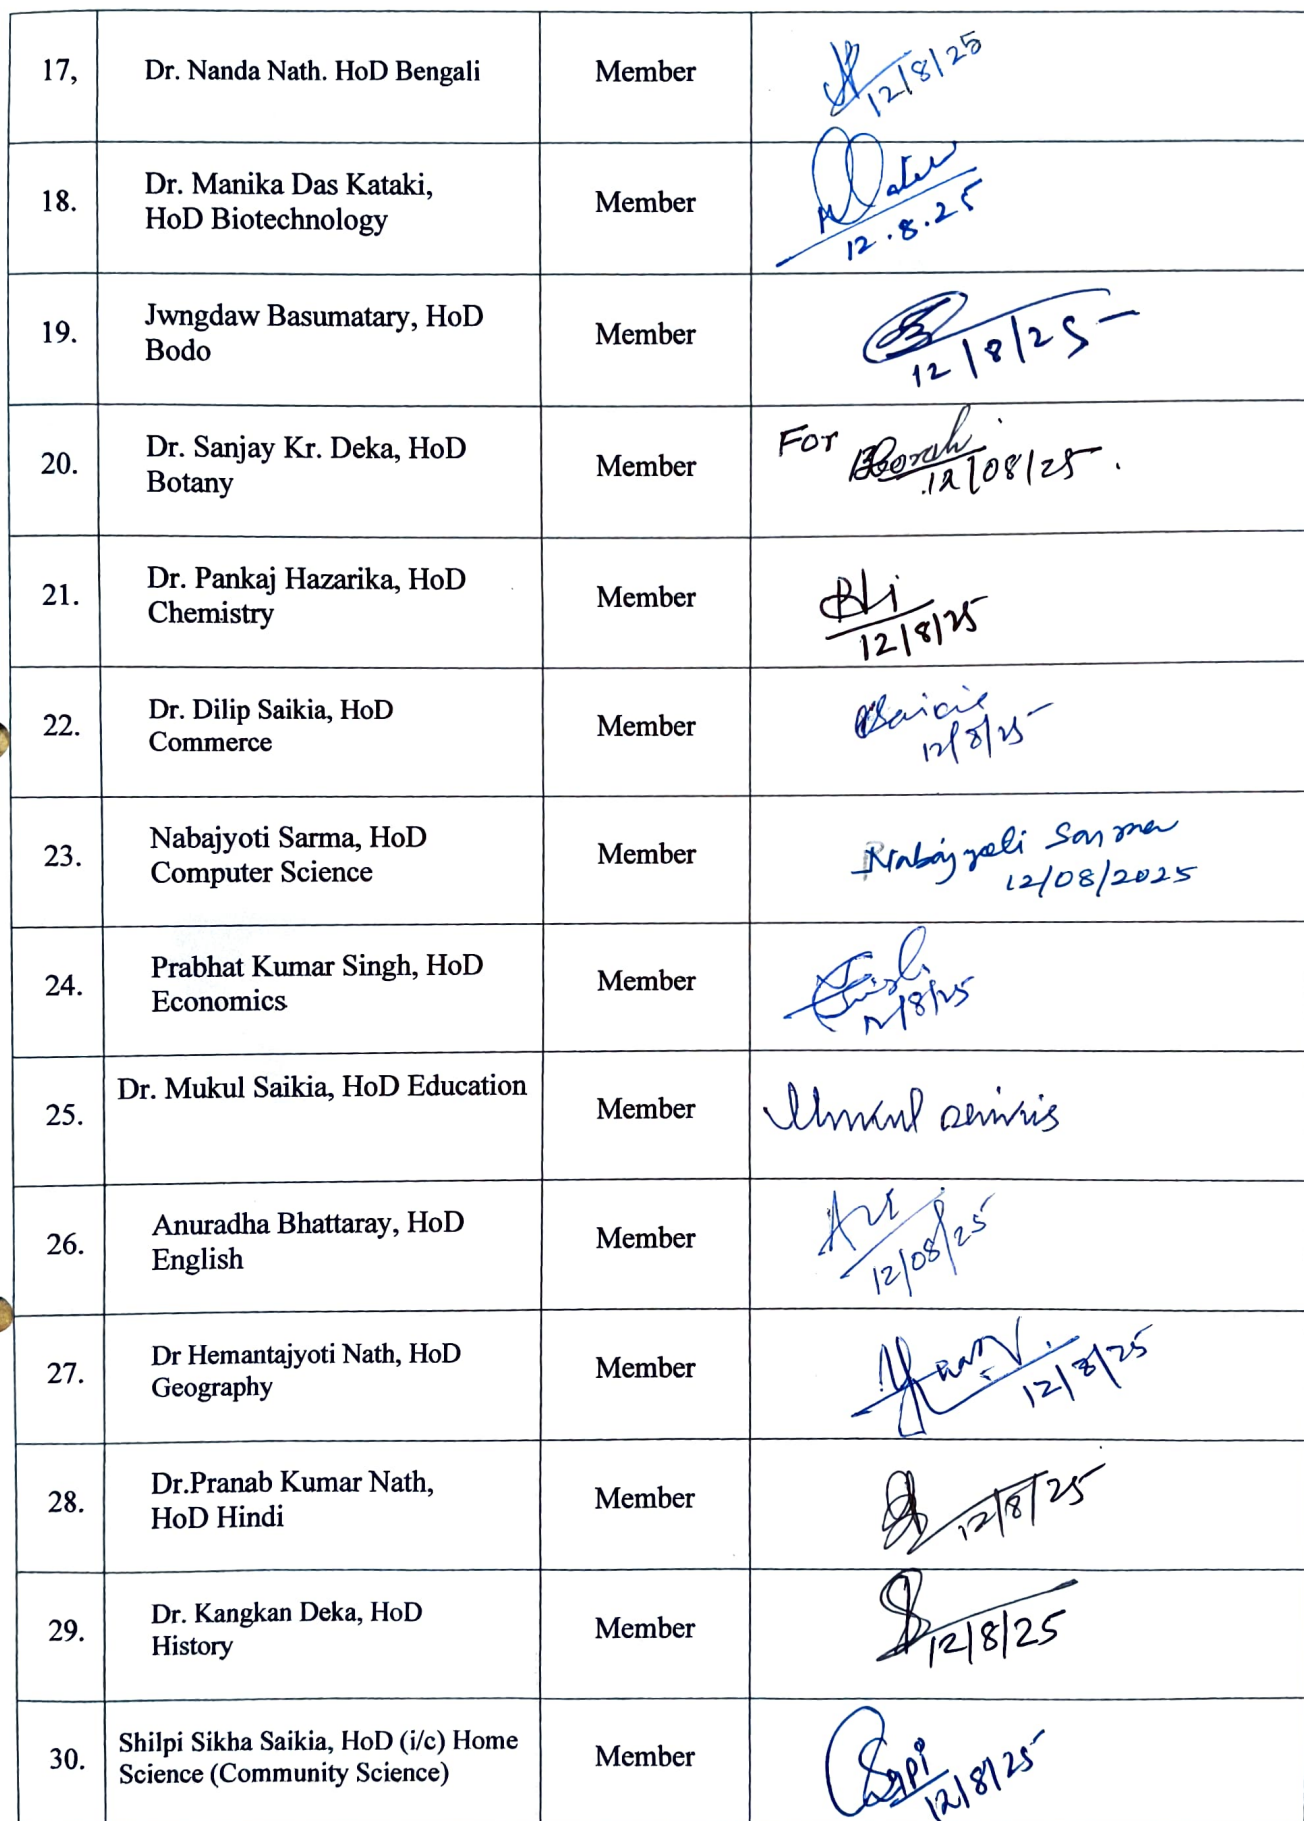 17, Dr. Nanda Nath. HoD Bengali Member 12/8/25
18. Dr. Manika Das Kataki,
HoD Biotechnology Member 12.8.25
19. Jwngdaw Basumatary, HoD
Bodo Member 12/8/25
20. Dr. Sanjay Kr. Deka, HoD
Botany Member For Borah 12/08/25.
21. Dr. Pankaj Hazarika, HoD
Chemistry Member 12/8/25
22. Dr. Dilip Saikia, HoD
Commerce Member 12/8/25
23. Nabajyoti Sarma, HoD
Computer Science Member Nabajyoti Sarma
12/08/2025
24. Prabhat Kumar Singh, HoD
Economics Member 12/8/25
25. Dr. Mukul Saikia, HoD Education Member
26. Anuradha Bhattaray, HoD
English Member 12/08/25
27. Dr Hemantajyoti Nath, HoD
Geography Member 12/8/25
28. Dr.Pranab Kumar Nath,
HoD Hindi Member 12/8/25
29. Dr. Kangkan Deka, HoD
History Member 12/8/25
30. Shilpi Sikha Saikia, HoD (i/c) Home
Science (Community Science) Member 12/8/25